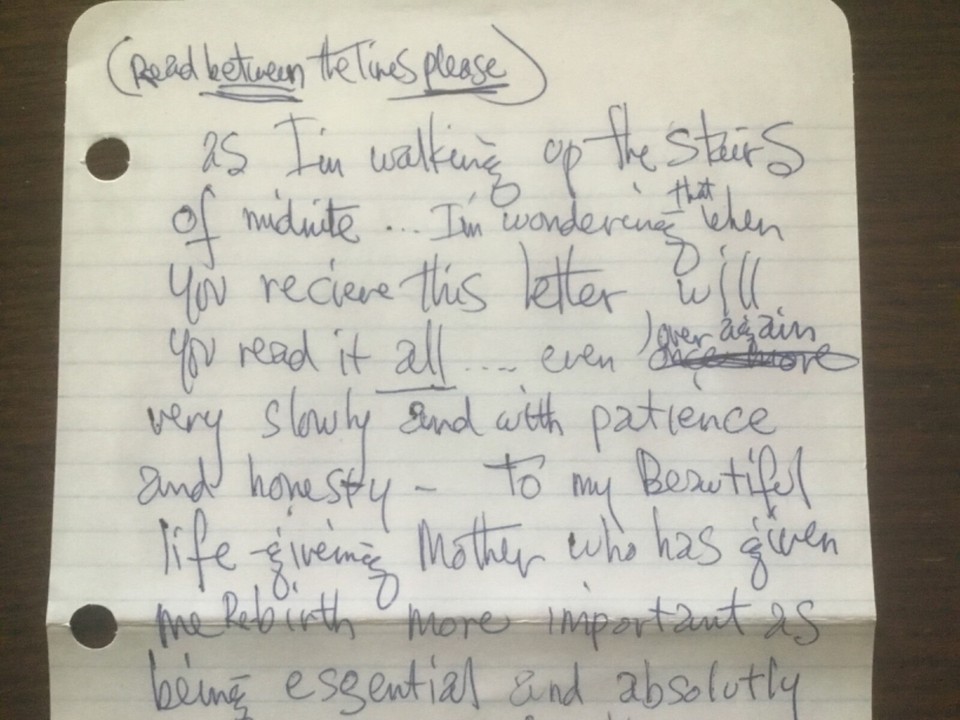 (Read between the lines please)
as I'm walking up the stairs
of midnite ... I'm wondering that when
you recieve this letter will
you read it all .... even over again
very slowly and with patience
and honesty - To my Beautiful
life-giveing Mother who has given
me Rebirth more important as
being essential and absolutly